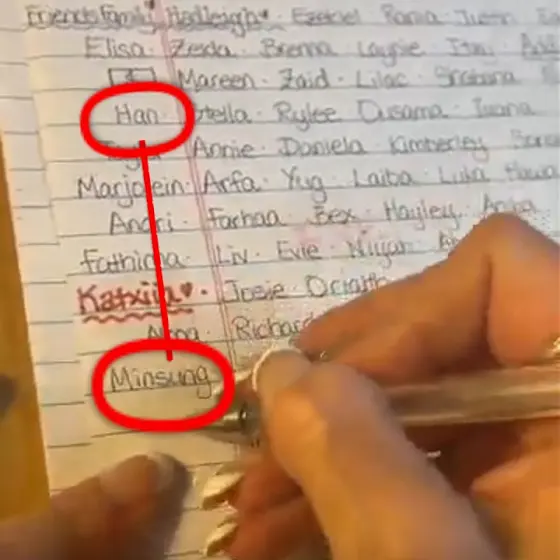 Friends Family Hadleigh · Ezekiel Rania
Elisa · Zeida · Brenna · Laynie
Mareen · Zaid · Lilac · Shabana
Han · Stella · Rylee Ousama · Ivana
Annie · Daniela · Kimberley
Marjolein · Arfa · Yug · Laiba · Luka
Andri · Farhaa · Bex · Hayley
Fathima · Liv · Evie · Niyah
Katxiia ♥ · Josie
Anna · Richard
Minsung